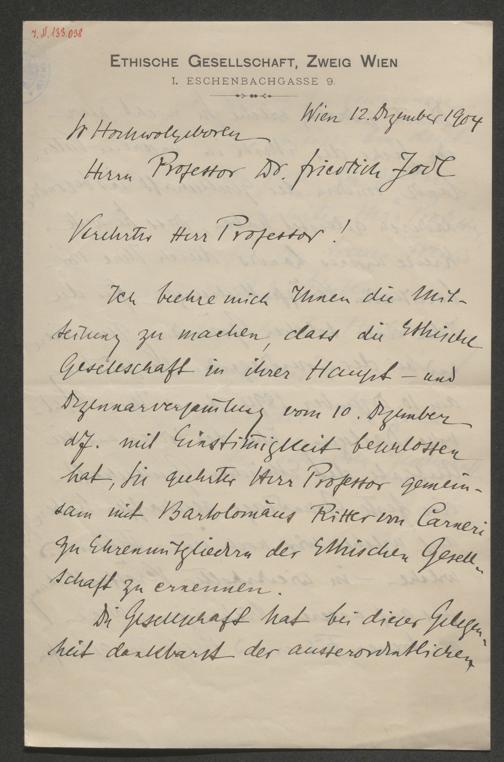 I.N. 133.038
ETHISCHE GESELLSCHAFT, ZWEIG WIEN
I. ESCHENBACHGASSE 9.
Wien 12. Dezember 1904
Sr Hochwolgeboren
Herrn Professor Dr. Friedrich Jodl
Verehrter Herr Professor!
Ich beehre mich Ihnen die Mit-
teilung zu machen, dass die Ethische
Gesellschaft in ihrer Haupt- und
Dezennarversammlung vom 10. Dezember
d.J. mit Einstimmigkeit beschlossen
hat, Sie geehrter Herr Professor gemein-
sam mit Bartolomäus Ritter von Carneri
zu Ehrenmitgliedern der Ethischen Gesell-
schaft zu ernennen.
Die Gesellschaft hat bei dieser Gelegen-
heit dankbarst der ausserordentlichen